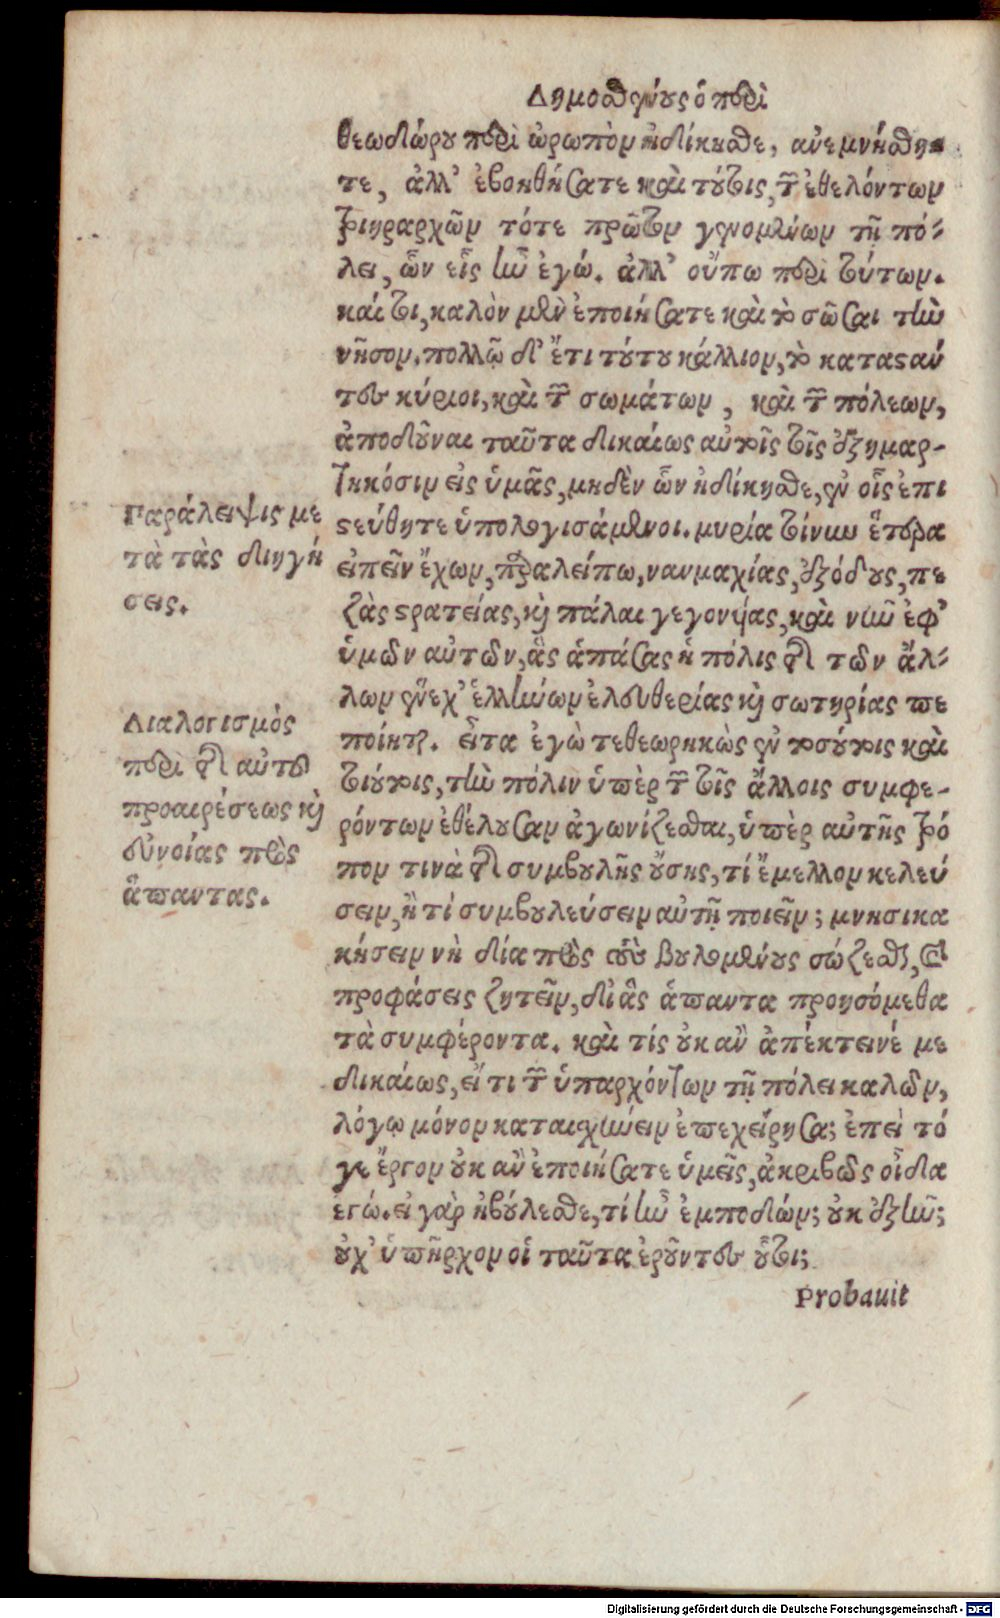 Δημοσθένους ὁ περὶ
θεοδώρου περὶ ὠρωπὸν ἠδίκησθε, ἀνεμνήσθη-
τε, ἀλλ' ἐβοηθήσατε καὶ τούτοις, τῶν ἐθελόντων
τριηραρχῶν τότε πρῶτον γενομένων τῇ πό-
λει, ὧν εἷς ἦν ἐγώ. ἀλλ' οὔπω περὶ τούτων.
καίτοι, καλὸν μὲν ἐποιήσατε καὶ τὸ σῶσαι τὴν
νῆσον. πολλῷ δ' ἔτι τούτου κάλλιον, τὸ καταστάν
τες κύριοι, καὶ τῶν σωμάτων, καὶ τῶν πόλεων,
ἀποδοῦναι ταῦτα δικαίως αὐτοῖς τοῖς ἐξημαρ-
τηκόσιν εἰς ὑμᾶς, μηδὲν ὧν ἠδίκησθε, ἐν οἷς ἐπι
στεύθητε ὑπολογισάμενοι. μυρία τοίνυν ἕτερα
εἰπεῖν ἔχων, παραλείπω, ναυμαχίας, ἐξόδους, πε
ζὰς στρατείας, καὶ πάλαι γεγονυίας, καὶ νῦν ἐφ'
ὑμῶν αὐτῶν, ἃς ἁπάσας ἡ πόλις τῆς τῶν ἄλ-
λων ἕνεχ' ἑλλήνων ἐλευθερίας καὶ σωτηρίας πε
ποίηται. εἶτα ἐγὼ τεθεωρηκὼς ἐν τοσούτοις καὶ
τοιούτοις, τὴν πόλιν ὑπὲρ τῶν τοῖς ἄλλοις συμφε-
ρόντων ἐθέλουσαν ἀγωνίζεσθαι, ὑπὲρ αὐτῆς τρό
πον τινὰ τῆς συμβουλῆς οὔσης, τί ἔμελλον κελεύ
σειν, ἢ τί συμβουλεύσειν αὐτῇ ποιεῖν; μνησικα
κήσειν νὴ δία πρὸς τοὺς βουλομένους σώζεσθαι, καὶ
προφάσεις ζητεῖν, δι' ἃς ἅπαντα προησόμεθα
τὰ συμφέροντα. καὶ τίς οὐκ ἂν ἀπέκτεινέ με
δικαίως, εἴ τι τῶν ὑπαρχόντων τῇ πόλει καλῶν,
λόγῳ μόνον καταισχύνειν ἐπεχείρησα; ἐπεὶ τό
γε ἔργον οὐκ ἂν ἐποιήσατε ὑμεῖς, ἀκριβῶς οἶδα
ἐγώ. εἰ γὰρ ἠβούλεσθε, τί ἦν ἐμποδών; οὐκ ἐξῆν;
οὐχ' ὑπῆρχον οἱ ταῦτα ἐροῦντες οὗτοι;
Probauit
Παράλειψις με
τὰ τὰς διηγή
σεις.
Διαλογισμὸς
περὶ τῆς αὐτοῦ
προαιρέσεως καὶ
εὐνοίας πρὸς
ἅπαντας.
Digitalisierung gefördert durch die Deutsche Forschungsgemeinschaft - DFG